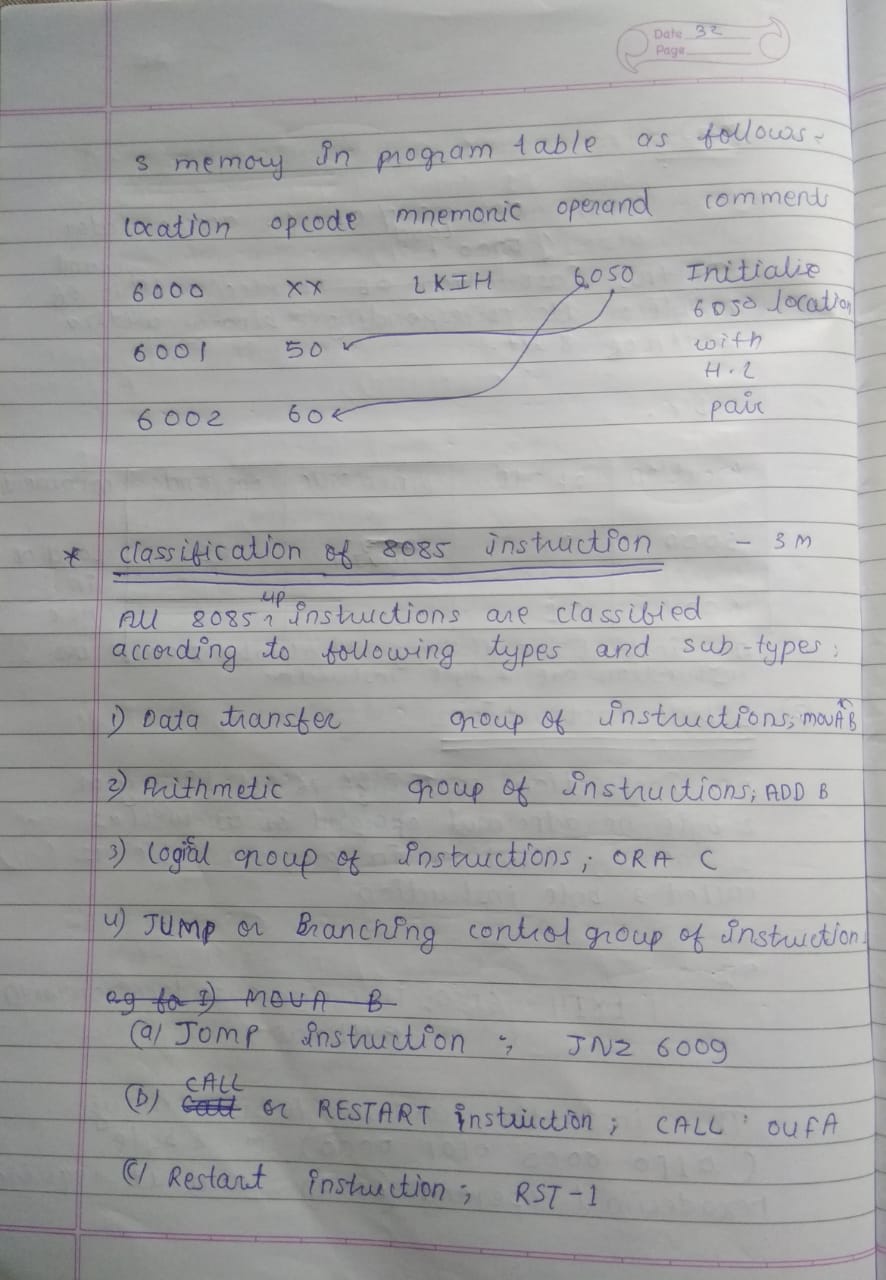 Date 32
Page
3 memory in program table as follows-
location opcode mnemonic operand comment
6000 XX LXIH 6050 Initialie
6050 location
6001 50 with
H.L
6002 60 pair
* classification of 8085 instruction - 3M
up
All 8085 instructions are classified
according to following types and sub-types:
1) Data transfer group of instructions; MOVA B
2) Arithmetic group of instructions; ADD B
3) logical group of instructions; ORA C
4) JUMP or Branching control group of instruction.
eg for 1) MOVA B
(a) Jomp instruction ; JNZ 6009
CALL
(b) Call or RESTART instruction ; CALL 04FA
(c) Restart instruction ; RST-1